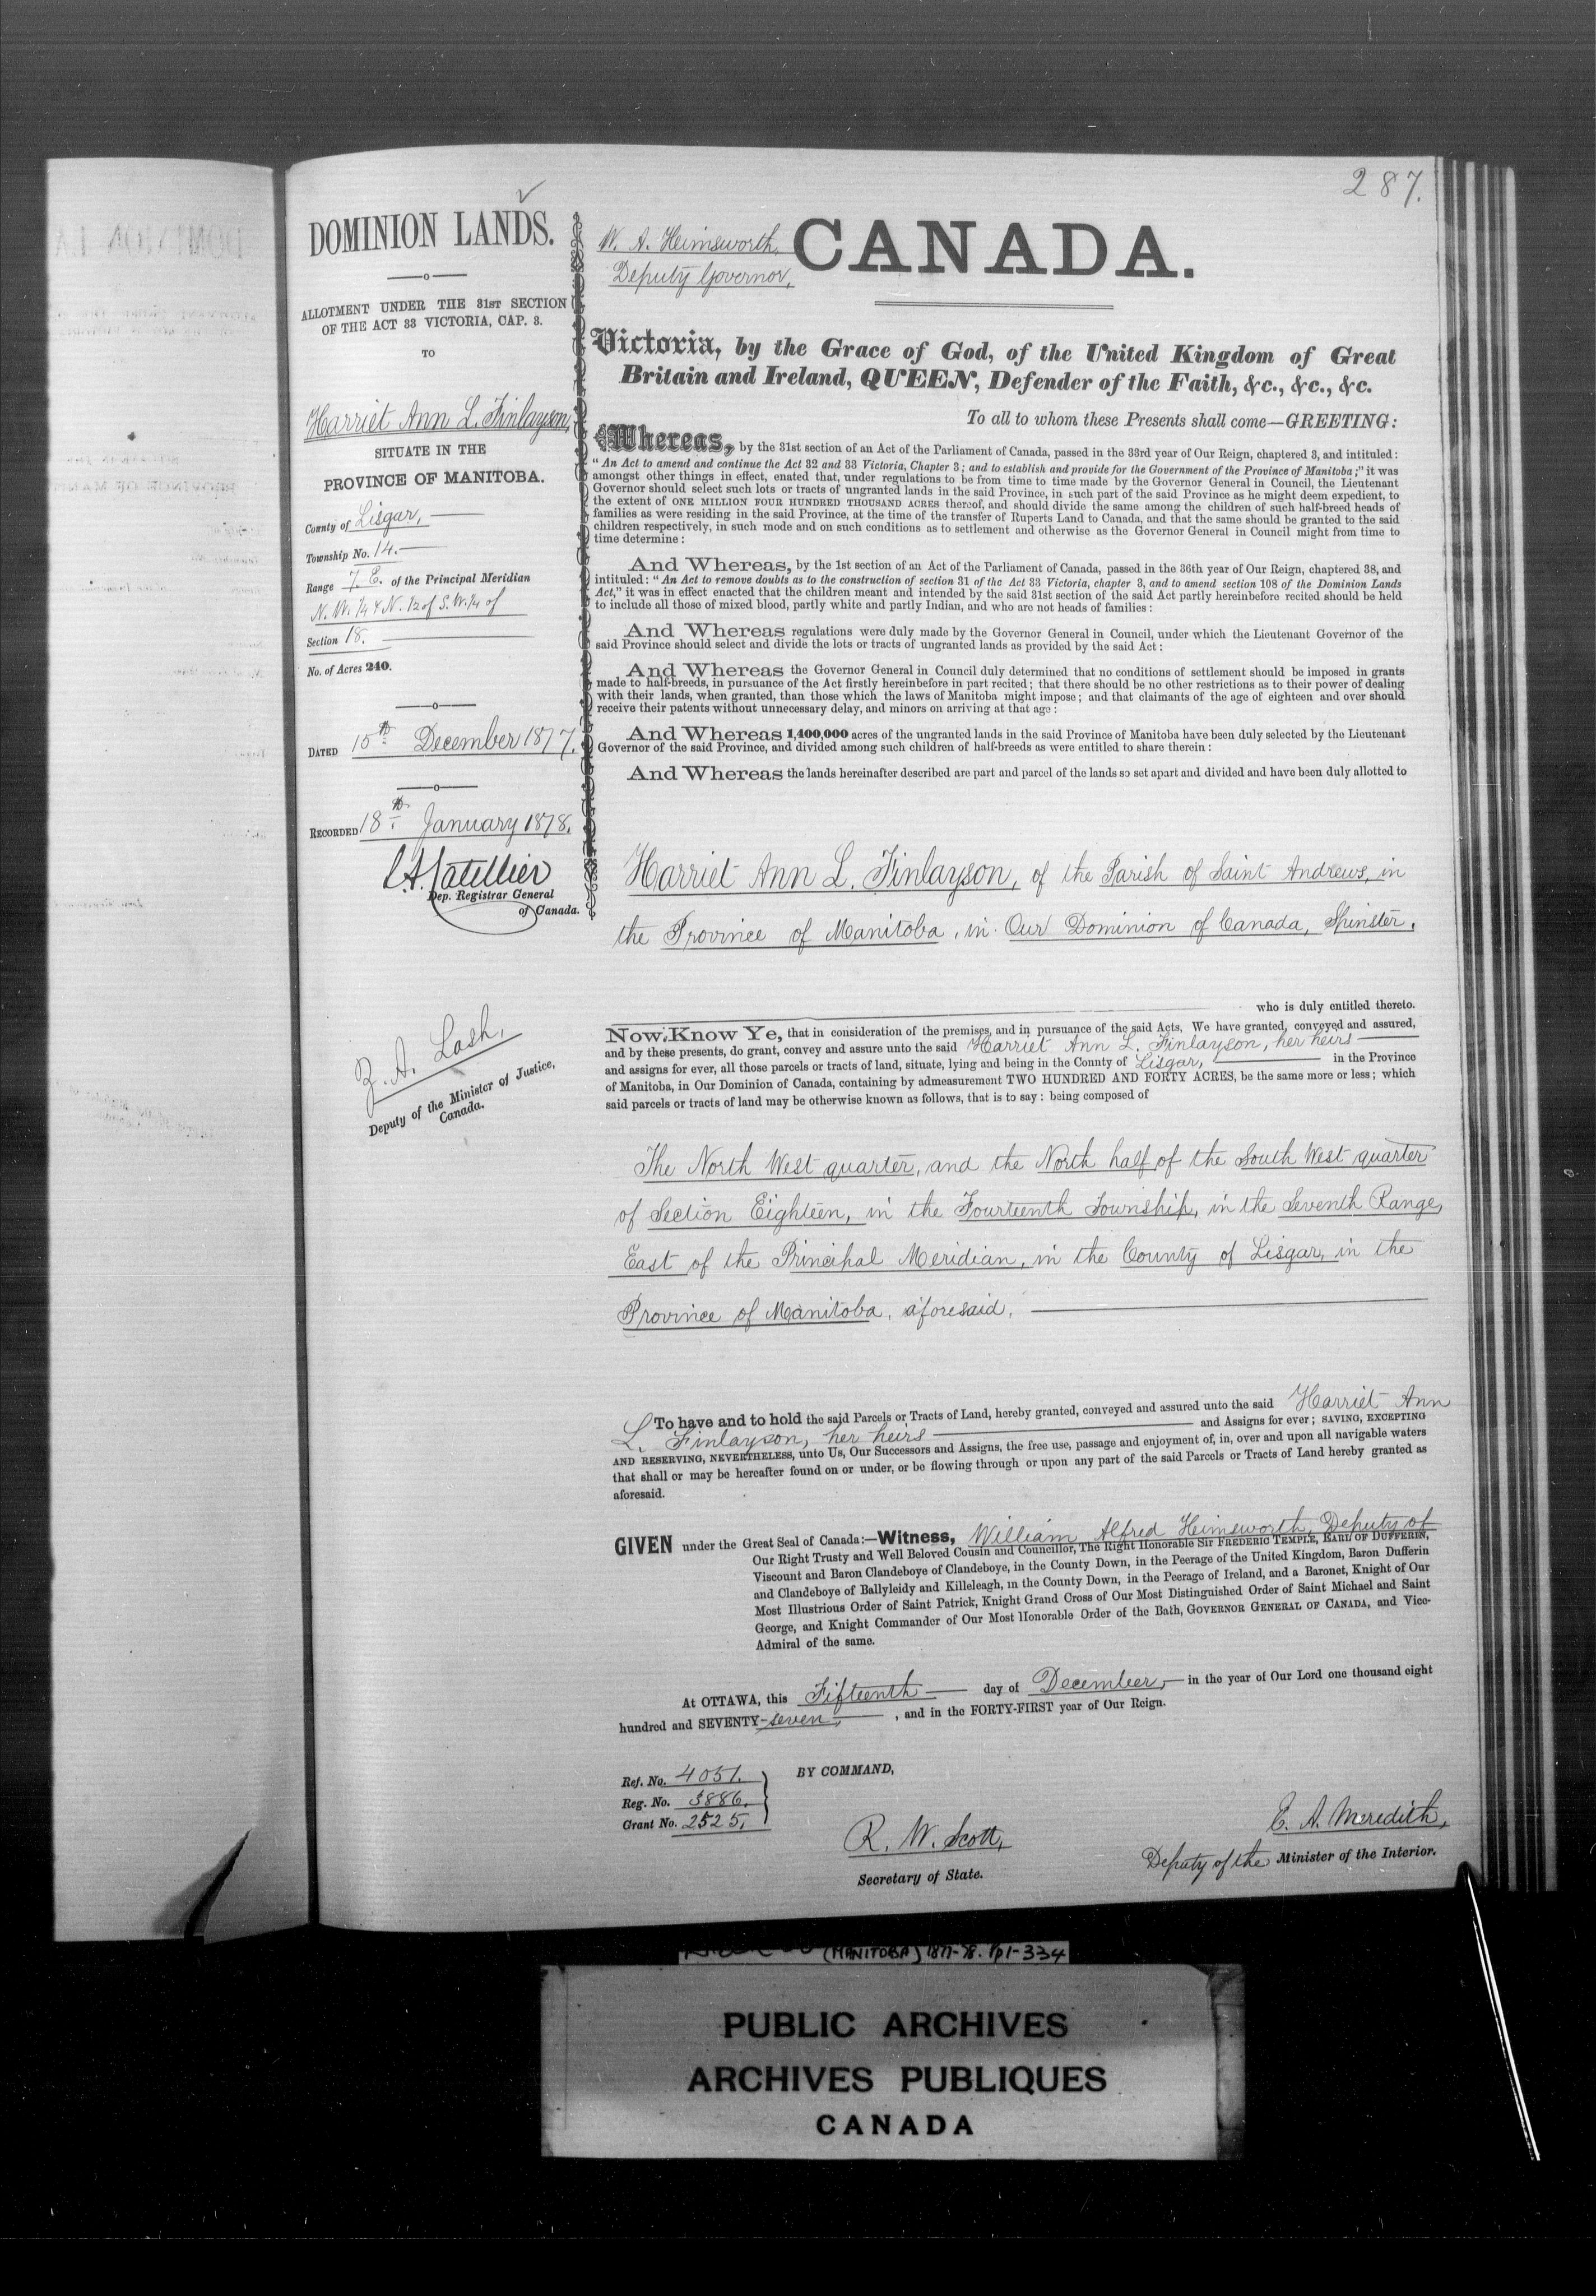 287.
DOMINION LANDS.
ALLOTMENT UNDER THE 31ST SECTION
OF THE ACT 33 VICTORIA, CAP. 3.
TO
Harriet Ann L. Finlayson,
SITUATE IN THE
PROVINCE OF MANITOBA.
County of Lisgar,
Township No. 14.
Range 7 E. of the Principal Meridian
N. W. 1/4 & N. 1/2 of S. W. 1/4 of
Section 18.
No. of Acres 240.
DATED 15th December 1877.
RECORDED 18th January 1878.
Dep. Registrar General
of Canada.
Z. A. Lash,
Deputy of the Minister of Justice,
Canada.
W. A. Heimsworth,
Deputy Governor,
CANADA.
Victoria, by the Grace of God, of the United Kingdom of Great
Britain and Ireland, QUEEN, Defender of the Faith, &c., &c., &c.
To all to whom these Presents shall come—GREETING:
Whereas, by the 31st section of an Act of the Parliament of Canada, passed in the 33rd year of Our Reign, chaptered 3, and intituled:
"An Act to amend and continue the Act 32 and 33 Victoria, Chapter 3; and to establish and provide for the Government of the Province of Manitoba;" it was
amongst other things in effect, enated that, under regulations to be from time to time made by the Governor General in Council, the Lieutenant
Governor should select such lots or tracts of ungranted lands in the said Province, in such part of the said Province as he might deem expedient, to
the extent of ONE MILLION FOUR HUNDRED THOUSAND ACRES thereof, and should divide the same among the children of such half-breed heads of
families as were residing in the said Province, at the time of the transfer of Ruperts Land to Canada, and that the same should be granted to the said
children respectively, in such mode and on such conditions as to settlement and otherwise as the Governor General in Council might from time to
time determine:
And Whereas, by the 1st section of an Act of the Parliament of Canada, passed in the 36th year of Our Reign, chaptered 38, and
intituled: "An Act to remove doubts as to the construction of section 31 of the Act 33 Victoria, chapter 3, and to amend section 108 of the Dominion Lands
Act," it was in effect enacted that the children meant and intended by the said 31st section of the said Act partly hereinbefore recited should be held
to include all those of mixed blood, partly white and partly Indian, and who are not heads of families:
And Whereas regulations were duly made by the Governor General in Council, under which the Lieutenant Governor of the
said Province should select and divide the lots or tracts of ungranted lands as provided by the said Act:
And Whereas the Governor General in Council duly determined that no conditions of settlement should be imposed in grants
made to half-breeds, in pursuance of the Act firstly hereinbefore in part recited; that there should be no other restrictions as to their power of dealing
with their lands, when granted, than those which the laws of Manitoba might impose; and that claimants of the age of eighteen and over should
receive their patents without unnecessary delay, and minors on arriving at that age:
And Whereas 1,400,000 acres of the ungranted lands in the said Province of Manitoba have been duly selected by the Lieutenant
Governor of the said Province, and divided among such children of half-breeds as were entitled to share therein:
And Whereas the lands hereinafter described are part and parcel of the lands so set apart and divided and have been duly allotted to
Harriet Ann L. Finlayson, of the Parish of Saint Andrews, in
the Province of Manitoba, in Our Dominion of Canada, Spinster,
who is duly entitled thereto.
Now Know Ye, that in consideration of the premises, and in pursuance of the said Acts, We have granted, conveyed and assured,
and by these presents, do grant, convey and assure unto the said Harriet Ann L. Finlayson, her heirs
and assigns for ever, all those parcels or tracts of land, situate, lying and being in the County of Lisgar, in the Province
of Manitoba, in Our Dominion of Canada, containing by admeasurement TWO HUNDRED AND FORTY ACRES, be the same more or less; which
said parcels or tracts of land may be otherwise known as follows, that is to say: being composed of
The North West quarter, and the North half of the South West quarter
of Section Eighteen, in the Fourteenth Township, in the Seventh Range,
East of the Principal Meridian, in the County of Lisgar, in the
Province of Manitoba, aforesaid,
To have and to hold the said Parcels or Tracts of Land, hereby granted, conveyed and assured unto the said Harriet Ann
L. Finlayson, her heirs and Assigns for ever; SAVING, EXCEPTING
AND RESERVING, NEVERTHELESS, unto Us, Our Successors and Assigns, the free use, passage and enjoyment of, in, over and upon all navigable waters
that shall or may be hereafter found on or under, or be flowing through or upon any part of the said Parcels or Tracts of Land hereby granted as
aforesaid.
GIVEN under the Great Seal of Canada:—Witness, William Alfred Heimsworth, Deputy of
Our Right Trusty and Well Beloved Cousin and Councillor, The Right Honorable Sir FREDERIC TEMPLE, EARL OF DUFFERIN,
Viscount and Baron Clandeboye of Clandeboye, in the County Down, in the Peerage of the United Kingdom, Baron Dufferin
and Clandeboye of Ballyleidy and Killeleagh, in the County Down, in the Peerage of Ireland, and a Baronet, Knight of Our
Most Illustrious Order of Saint Patrick, Knight Grand Cross of Our Most Distinguished Order of Saint Michael and Saint
George, and Knight Commander of Our Most Honorable Order of the Bath, GOVERNOR GENERAL OF CANADA, and Vice-
Admiral of the same.
At OTTAWA, this Fifteenth day of December, in the year of Our Lord one thousand eight
hundred and SEVENTY-seven, , and in the FORTY-FIRST year of Our Reign.
Ref. No. 4051.
Reg. No. 3886.
Grant No. 2525,
BY COMMAND,
R. W. Scott,
Secretary of State.
E. A. Meredith,
Deputy of the Minister of the Interior.
(MANITOBA) 1877-78. Pp 1-334
PUBLIC ARCHIVES
ARCHIVES PUBLIQUES
CANADA